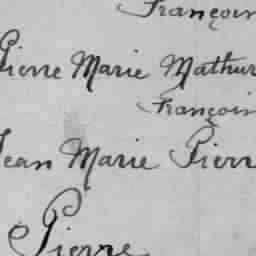 François
Pierre Marie Mathur
François
Jean Marie Pierr
Pierre